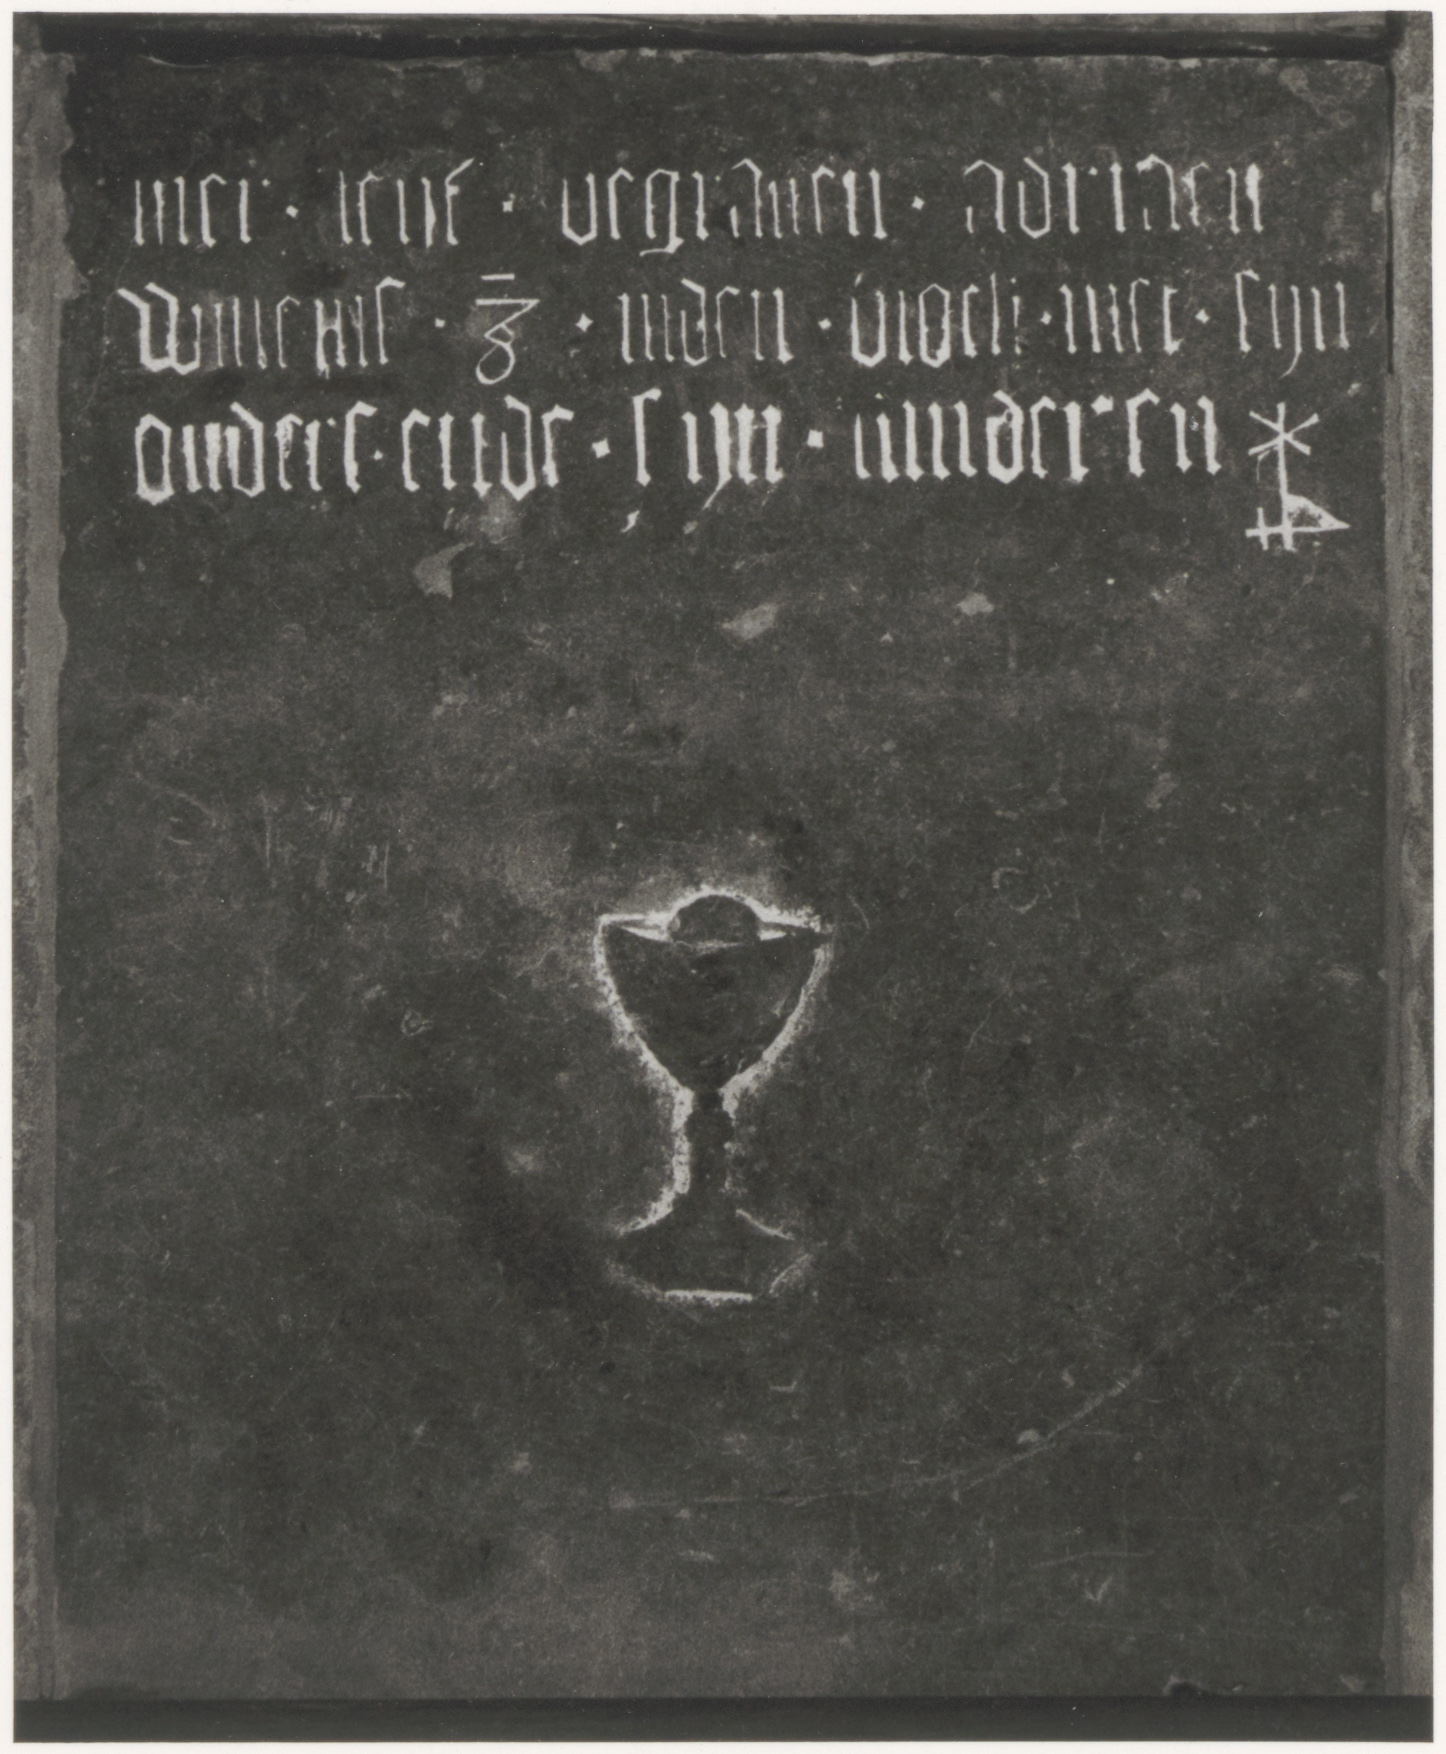 hier · leit · begrauen · adriaen
willems · inden · met · sijn
ouders · ende · sijn · kinderen